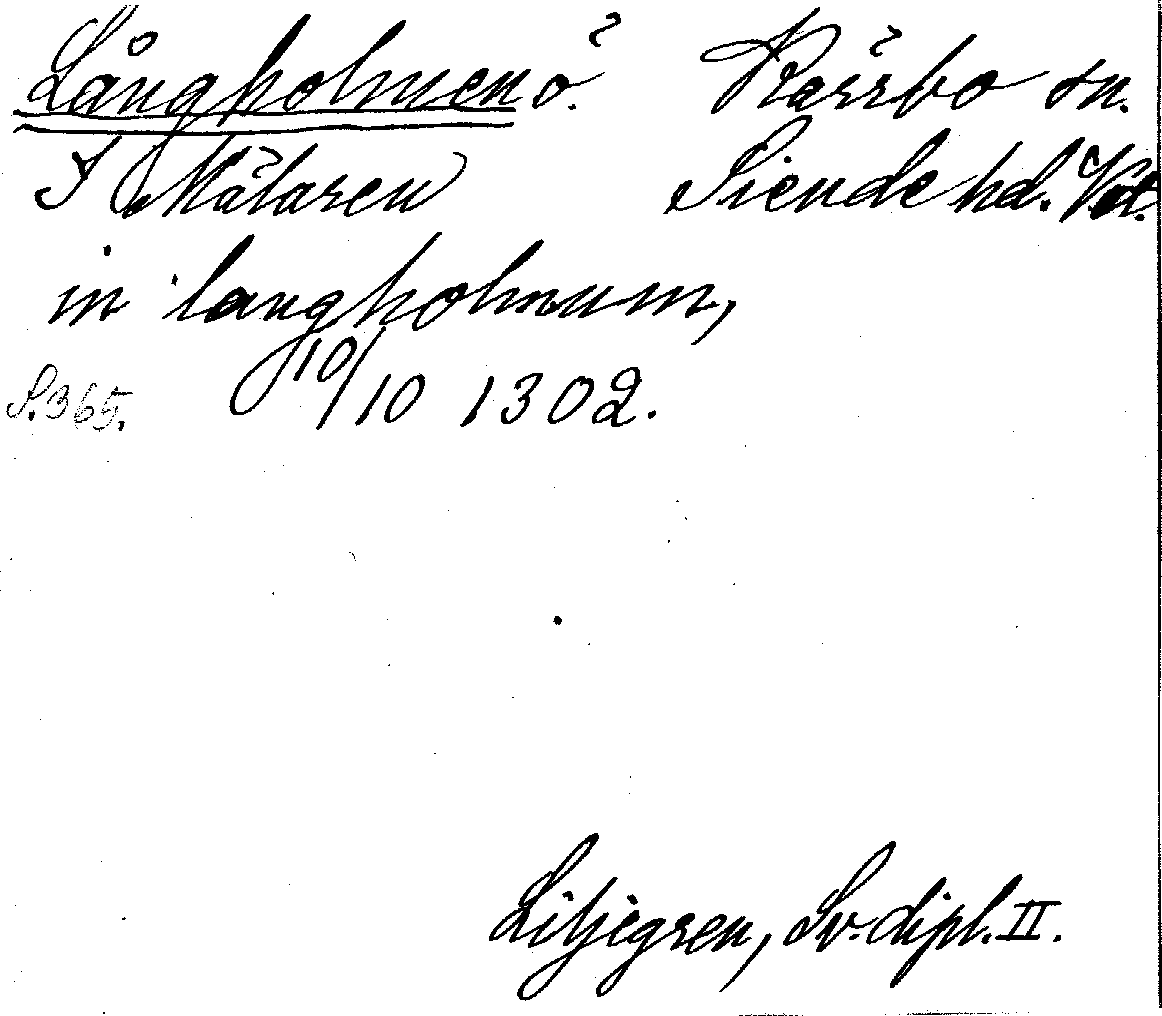 Långholmen ö. Kärrbo sn.
I Mälaren Siende hd. Vstl.
in langholmum,
S. 365. 10/10 1302.
Liljegren, Sv. dipl. II.